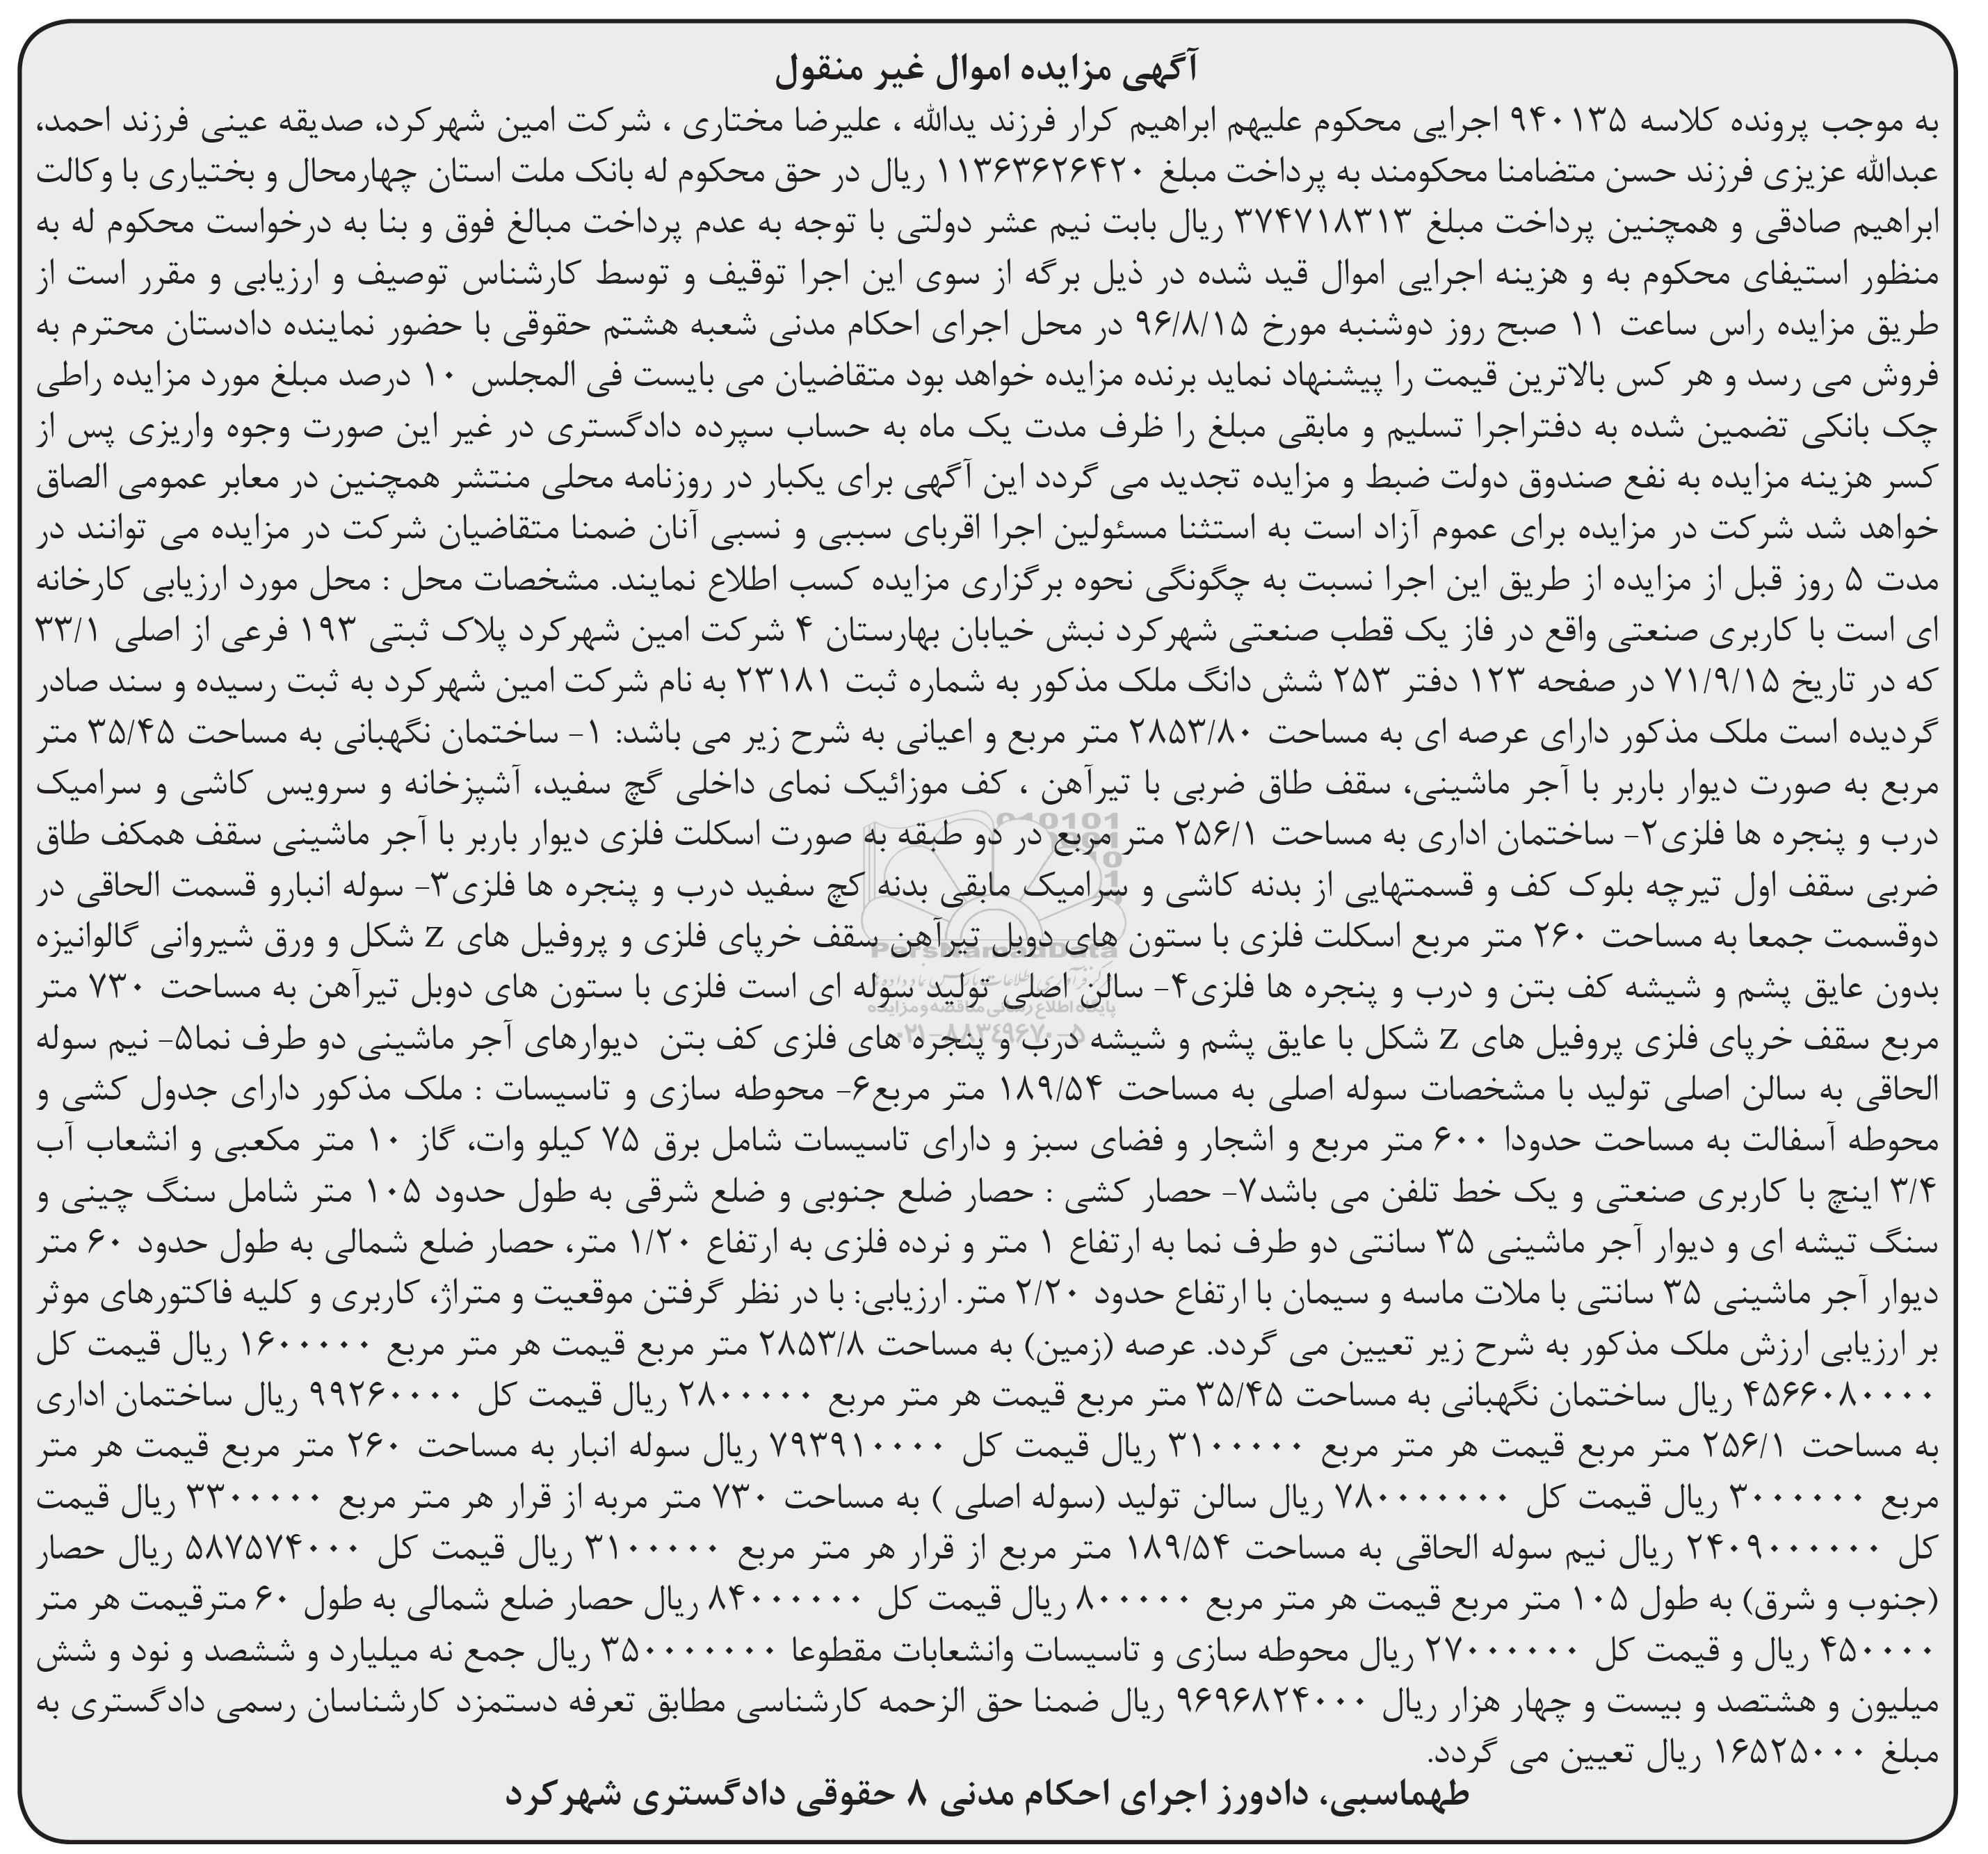 آگهی مزایده اموال غیر منقول
به موجب پرونده کلاسه ۹۴۰۱۳۵ اجرایی محکوم علیهم ابراهیم کرار فرزند یدالله ، علیرضا مختاری ، شرکت امین شهرکرد، صدیقه عینی فرزند احمد،
عبدالله عزیزی فرزند حسن متضامنا محکومند به پرداخت مبلغ ۱۱۳۶۳۶۲۶۴۲۰ ریال در حق محکوم له بانک ملت استان چهارمحال و بختیاری با وکالت
ابراهیم صادقی و همچنین پرداخت مبلغ ۳۷۴۷۱۸۳۱۳ ریال بابت نیم عشر دولتی با توجه به عدم پرداخت مبالغ فوق و بنا به درخواست محکوم له به
منظور استیفای محکوم به و هزینه اجرایی اموال قید شده در ذیل برگه از سوی این اجرا توقیف و توسط کارشناس توصیف و ارزیابی و مقرر است از
طریق مزایده راس ساعت ۱۱ صبح روز دوشنبه مورخ ۹۶/۸/۱۵ در محل اجرای احکام مدنی شعبه هشتم حقوقی با حضور نماینده دادستان محترم به
فروش می رسد و هر کس بالاترین قیمت را پیشنهاد نماید برنده مزایده خواهد بود متقاضیان می بایست فی المجلس ۱۰ درصد مبلغ مورد مزایده راطی
چک بانکی تضمین شده به دفتراجرا تسلیم و مابقی مبلغ را ظرف مدت یک ماه به حساب سپرده دادگستری در غیر این صورت وجوه واریزی پس از
کسر هزینه مزایده به نفع صندوق دولت ضبط و مزایده تجدید می گردد این آگهی برای یکبار در روزنامه محلی منتشر همچنین در معابر عمومی الصاق
خواهد شد شرکت در مزایده برای عموم آزاد است به استثنا مسئولین اجرا اقربای سببی و نسبی آنان ضمنا متقاضیان شرکت در مزایده می توانند در
مدت ۵ روز قبل از مزایده از طریق این اجرا نسبت به چگونگی نحوه برگزاری مزایده کسب اطلاع نمایند. مشخصات محل : محل مورد ارزیابی کارخانه
ای است با کاربری صنعتی واقع در فاز یک قطب صنعتی شهرکرد نبش خیابان بهارستان ۴ شرکت امین شهرکرد پلاک ثبتی ۱۹۳ فرعی از اصلی ۳۳/۱
که در تاریخ ۷۱/۹/۱۵ در صفحه ۱۲۳ دفتر ۲۵۳ شش دانگ ملک مذکور به شماره ثبت ۲۳۱۸۱ به نام شرکت امین شهرکرد به ثبت رسیده و سند صادر
گردیده است ملک مذکور دارای عرصه ای به مساحت ۲۸۵۳/۸۰ متر مربع و اعیانی به شرح زیر می باشد: ۱- ساختمان نگهبانی به مساحت ۳۵/۴۵ متر
مربع به صورت دیوار باربر با آجر ماشینی، سقف طاق ضربی با تیرآهن ، کف موزائیک نمای داخلی گچ سفید، آشپزخانه و سرویس کاشی و سرامیک
درب و پنجره ها فلزی۲- ساختمان اداری به مساحت ۲۵۶/۱ متر مربع در دو طبقه به صورت اسکلت فلزی دیوار باربر با آجر ماشینی سقف همکف طاق
ضربی سقف اول تیرچه بلوک کف و قسمتهایی از بدنه کاشی و سرامیک مابقی بدنه کچ سفید درب و پنجره ها فلزی۳- سوله انبارو قسمت الحاقی در
دوقسمت جمعا به مساحت ۲۶۰ متر مربع اسکلت فلزی با ستون های دوبل تیرآهن سقف خرپای فلزی و پروفیل های z شکل و ورق شیروانی گالوانیزه
بدون عایق پشم و شیشه کف بتن و درب و پنجره ها فلزی۴- سالن اصلی تولید سوله ای است فلزی با ستون های دوبل تیرآهن به مساحت ۷۳۰ متر
مربع سقف خرپای فلزی پروفیل های z شکل با عایق پشم و شیشه درب و پنجره های فلزی کف بتن دیوارهای آجر ماشینی دو طرف نما۵- نیم سوله
الحاقی به سالن اصلی تولید با مشخصات سوله اصلی به مساحت ۱۸۹/۵۴ متر مربع۶- محوطه سازی و تاسیسات : ملک مذکور دارای جدول کشی و
محوطه آسفالت به مساحت حدودا ۶۰۰ متر مربع و اشجار و فضای سبز و دارای تاسیسات شامل برق ۷۵ کیلو وات، گاز ۱۰ متر مکعبی و انشعاب آب
۳/۴ اینچ با کاربری صنعتی و یک خط تلفن می باشد۷- حصار کشی : حصار ضلع جنوبی و ضلع شرقی به طول حدود ۱۰۵ متر شامل سنگ چینی و
سنگ تیشه ای و دیوار آجر ماشینی ۳۵ سانتی دو طرف نما به ارتفاع ۱ متر و نرده فلزی به ارتفاع ۱/۲۰ متر، حصار ضلع شمالی به طول حدود ۶۰ متر
دیوار آجر ماشینی ۳۵ سانتی با ملات ماسه و سیمان با ارتفاع حدود ۲/۲۰ متر. ارزیابی: با در نظر گرفتن موقعیت و متراژ، کاربری و کلیه فاکتورهای موثر
بر ارزیابی ارزش ملک مذکور به شرح زیر تعیین می گردد. عرصه (زمین) به مساحت ۲۸۵۳/۸ متر مربع قیمت هر متر مربع ۱۶۰۰۰۰۰ ریال قیمت کل
۴۵۶۶۰۸۰۰۰۰ ریال ساختمان نگهبانی به مساحت ۳۵/۴۵ متر مربع قیمت هر متر مربع ۲۸۰۰۰۰۰ ریال قیمت کل ۹۹۲۶۰۰۰۰ ریال ساختمان اداری
به مساحت ۲۵۶/۱ متر مربع قیمت هر متر مربع ۳۱۰۰۰۰۰ ریال قیمت کل ۷۹۳۹۱۰۰۰۰ ریال سوله انبار به مساحت ۲۶۰ متر مربع قیمت هر متر
مربع ۳۰۰۰۰۰۰ ریال قیمت کل ۷۸۰۰۰۰۰۰۰ ریال سالن تولید (سوله اصلی ) به مساحت ۷۳۰ متر مربه از قرار هر متر مربع ۳۳۰۰۰۰۰ ریال قیمت
کل ۲۴۰۹۰۰۰۰۰۰ ریال نیم سوله الحاقی به مساحت ۱۸۹/۵۴ متر مربع از قرار هر متر مربع ۳۱۰۰۰۰۰ ریال قیمت کل ۵۸۷۵۷۴۰۰۰ ریال حصار
(جنوب و شرق) به طول ۱۰۵ متر مربع قیمت هر متر مربع ۸۰۰۰۰۰ ریال قیمت کل ۸۴۰۰۰۰۰۰ ریال حصار ضلع شمالی به طول ۶۰ مترقیمت هر متر
۴۵۰۰۰۰ ریال و قیمت کل ۲۷۰۰۰۰۰۰ ریال محوطه سازی و تاسیسات وانشعابات مقطوعا ۳۵۰۰۰۰۰۰۰ ریال جمع نه میلیارد و ششصد و نود و شش
میلیون و هشتصد و بیست و چهار هزار ریال ۹۶۹۶۸۲۴۰۰۰ ریال ضمنا حق الزحمه کارشناسی مطابق تعرفه دستمزد کارشناسان رسمی دادگستری به
مبلغ ۱۶۵۲۵۰۰۰ ریال تعیین می گردد.
طهماسبی، دادورز اجرای احکام مدنی ۸ حقوقی دادگستری شهرکرد
ParsNamadData
پایگاه اطلاع رسانی مناقصه و مزایده
۰۲۱-۸۸۳۴۹۶۷۰-۵